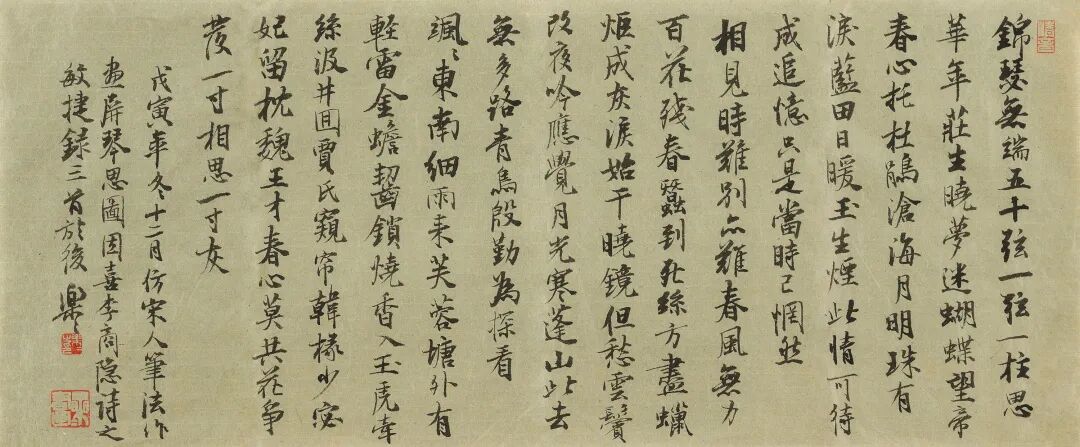 錦瑟無端五十弦一弦一柱思
華年莊生曉夢迷蝴蝶望帝
春心托杜鵑滄海月明珠有
淚藍田日暖玉生煙此情可待
成追憶只是當時已惘然
相見時難別亦難春風無力
百花殘春蠶到死絲方盡蠟
炬成灰淚始干曉鏡但愁雲鬢
改夜吟應覺月光寒蓬山此去
無多路青鳥殷勤為探看
颯〻東南細雨来芙蓉塘外有
軽雷金蟾齧鎖燒香入玉虎牽
絲汲井囬賈氏窺帘韓掾少宓
妃留枕魏王才春心莫共花爭
發一寸相思一寸灰
戊寅年冬十二月仿宋人筆法作
畫屏琴思圖因喜李商隐詩之
敏捷録三首於後